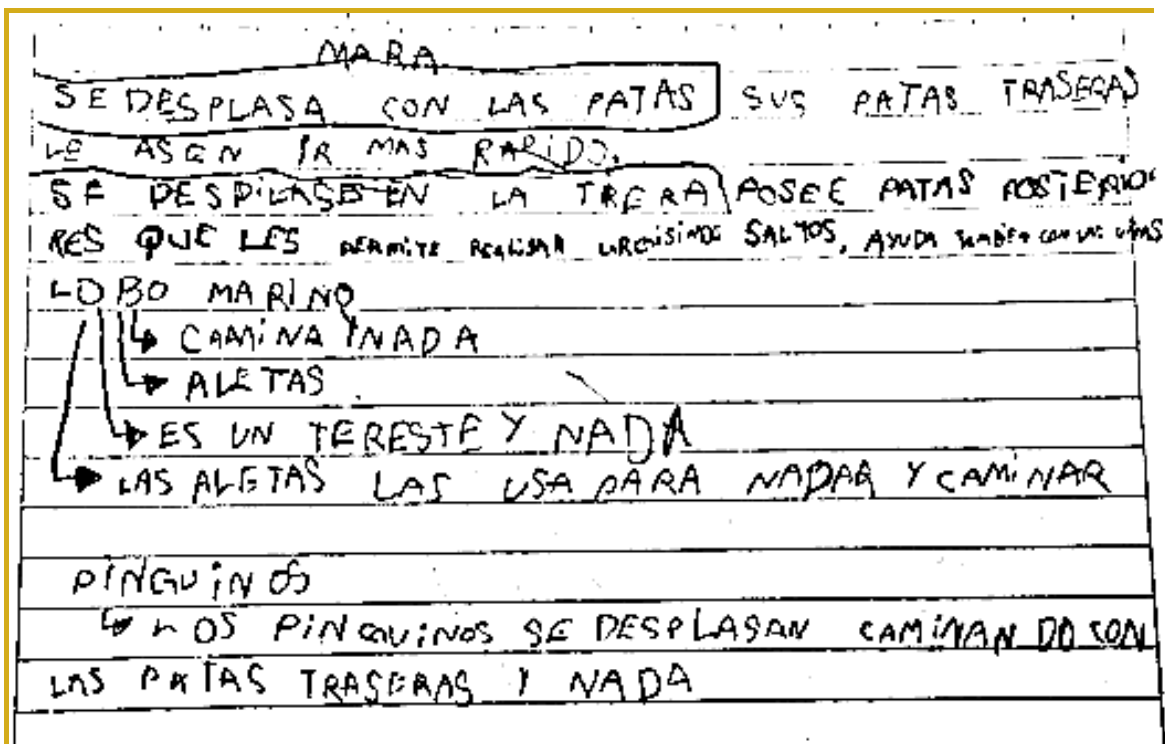 MARA
SE DESPLASA CON LAS PATAS SUS PATAS TRASERAS
LE ASEN IR MAS RAPIDO.
SE DESPLASE EN LA TRERA POSEE PATAS POSTERIO
RES QUE LES PERMITE REALISAR SALTOS, AYUDA TAMBIEN CON LAS UÑAS
LOBO MARINO
CAMINA Y NADA
ALETAS
ES UN TERESTE Y NADA
LAS ALETAS LAS USA PARA NADAR Y CAMINAR
PINGUINOS
LOS PINGUINOS SE DESPLASAN CAMINANDO CON
LAS PATAS TRASERAS Y NADA